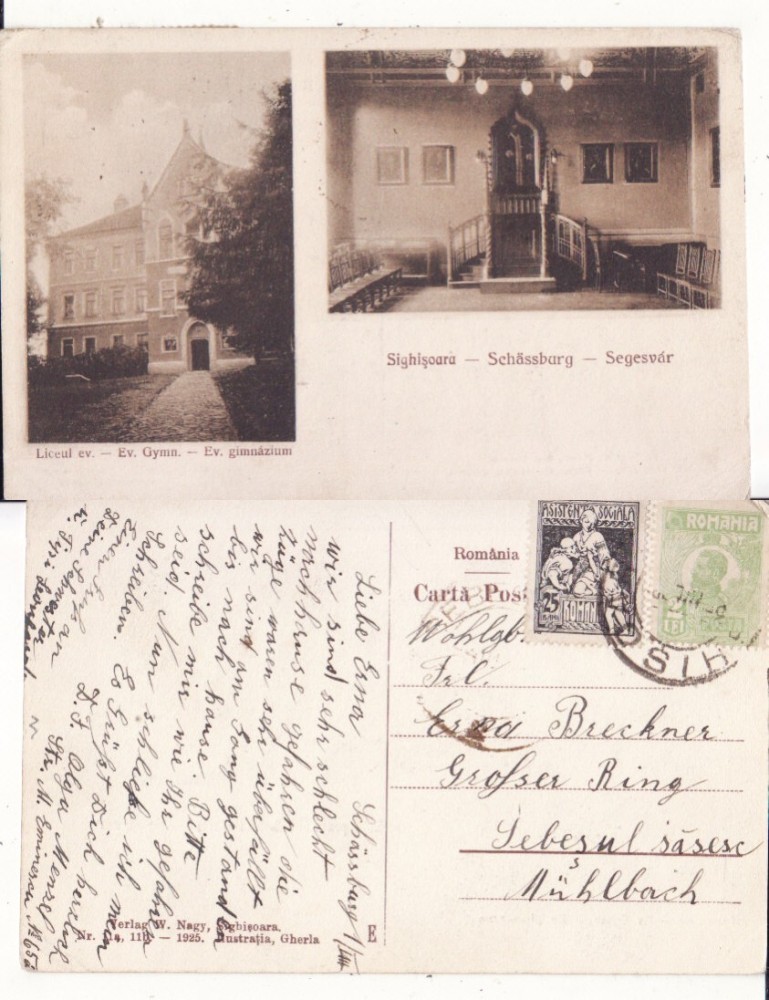 Sighișoara — Schässburg — Segesvár
Liceul ev. — Ev. Gymn. — Ev. gimnázium
România
Cartă Poș
ASISTENȚA SOCIALĂ
25
BANI
ROMÂNIA
LEI
Wohlgb.
Frl.
Erna Breckner
Großer Ring
Sebesul săsesc
Mühlbach
Schässburg 1/VIII
Liebe Erna
wir sind sehr schlecht
nach hause gefahren die
Züge waren sehr überfüllt
wir sind am Gang gestanden
bis nach hause. Bitte
schreibe mir wie Ihr gefahren
seid. Nun schließe ich mein
Schreiben. Es Grüßt Dich herzlich
D. F. Olga Menzel
Str. M. Eminescu № 65
Einen Gruß an
Deine Schwester
Verlag W. Nagy, Sighișoara.
Nr. 11a, 11b — 1925. Ilustrația, Gherla
E